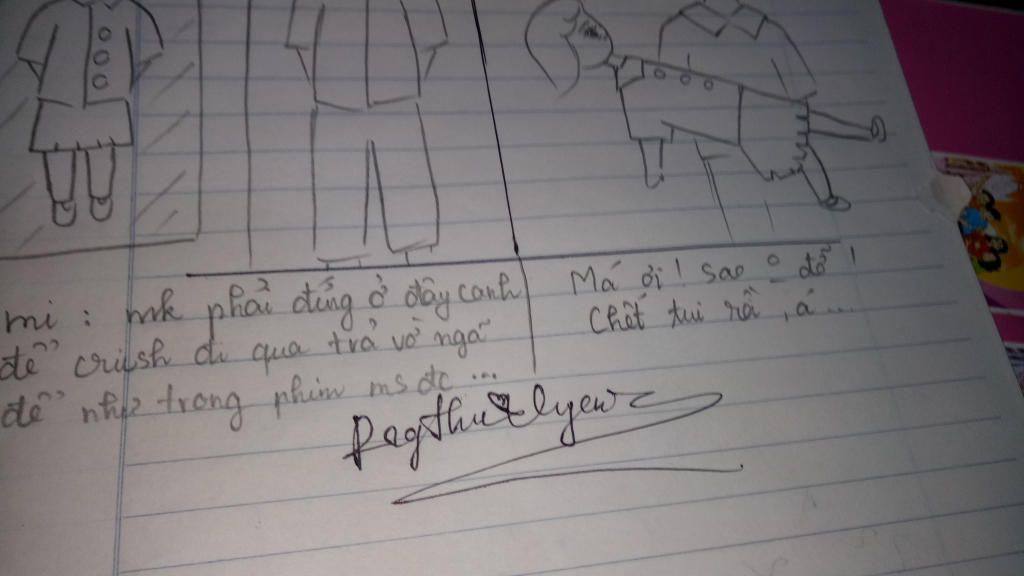 mi : mk phải đứng ở đây canh
để crush đi qua trả vờ ngã
để như trong phim ms đc ...
Má ơi ! sao o _ đỡ !
Chết tui rồi , á ...